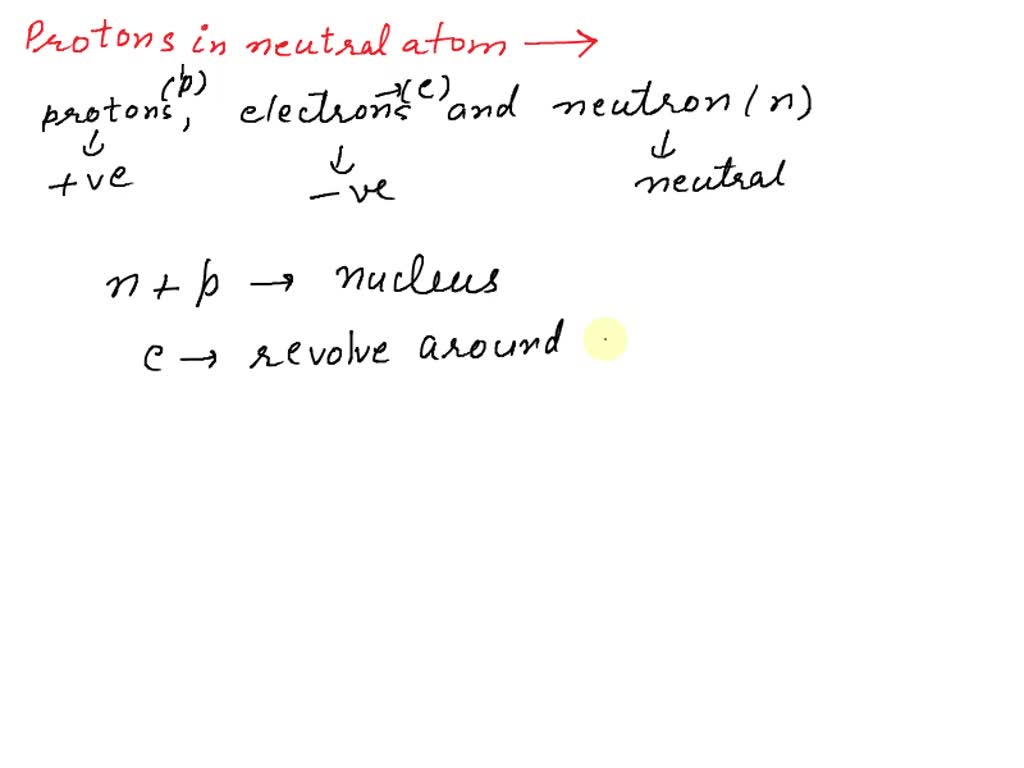 Protons in neutral atom →
protons(p), electrons→(e) and neutron(n)
↓ ↓ ↓
+ve -ve neutral
n + p → nucleus
e → revolve around